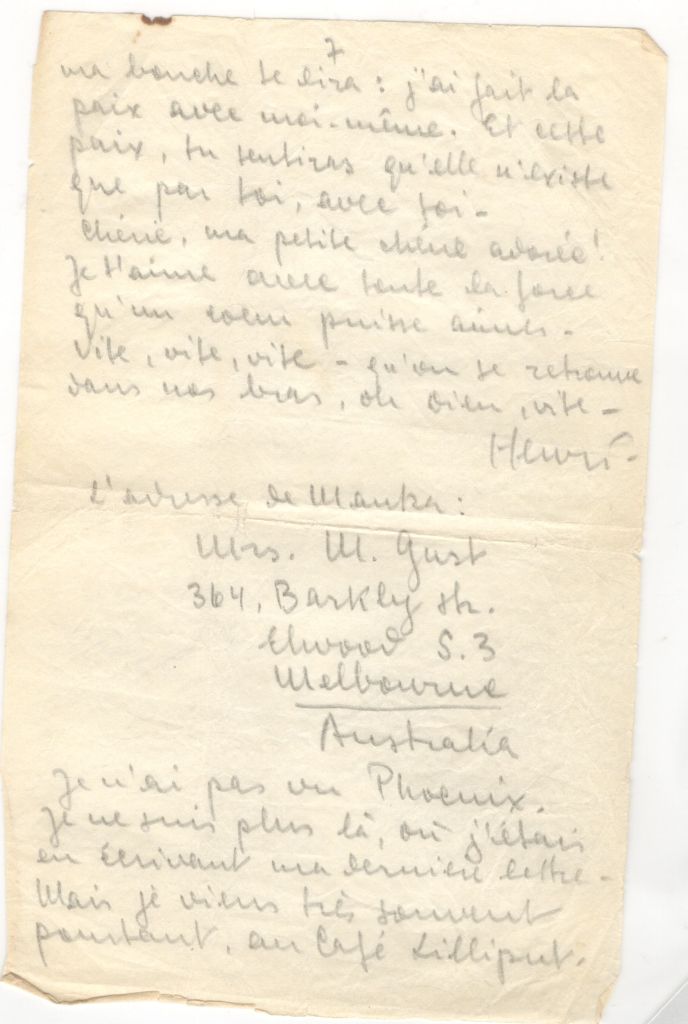 7
ma bouche te dira : j'ai fait la
paix avec moi-même. Et cette
paix, tu sentiras qu'elle n'existe
que par toi, avec toi -
Chérie, ma petite chérie adorée !
Je t'aime avec toute la force
qu'un coeur puisse aimer -
Vite, vite, vite - qu'on se retrouve
dans nos bras, oh Dieu, vite -
Henri -
L'adresse de Manka :
Mrs. M. Gust
364, Barkly str.
Elwood S.3
Melbourne
Australia
Je n'ai pas vu Phoenix.
Je ne suis plus là, où j'étais
en écrivant ma dernière lettre -
Mais je viens très souvent
pourtant, au Café Lilliput.